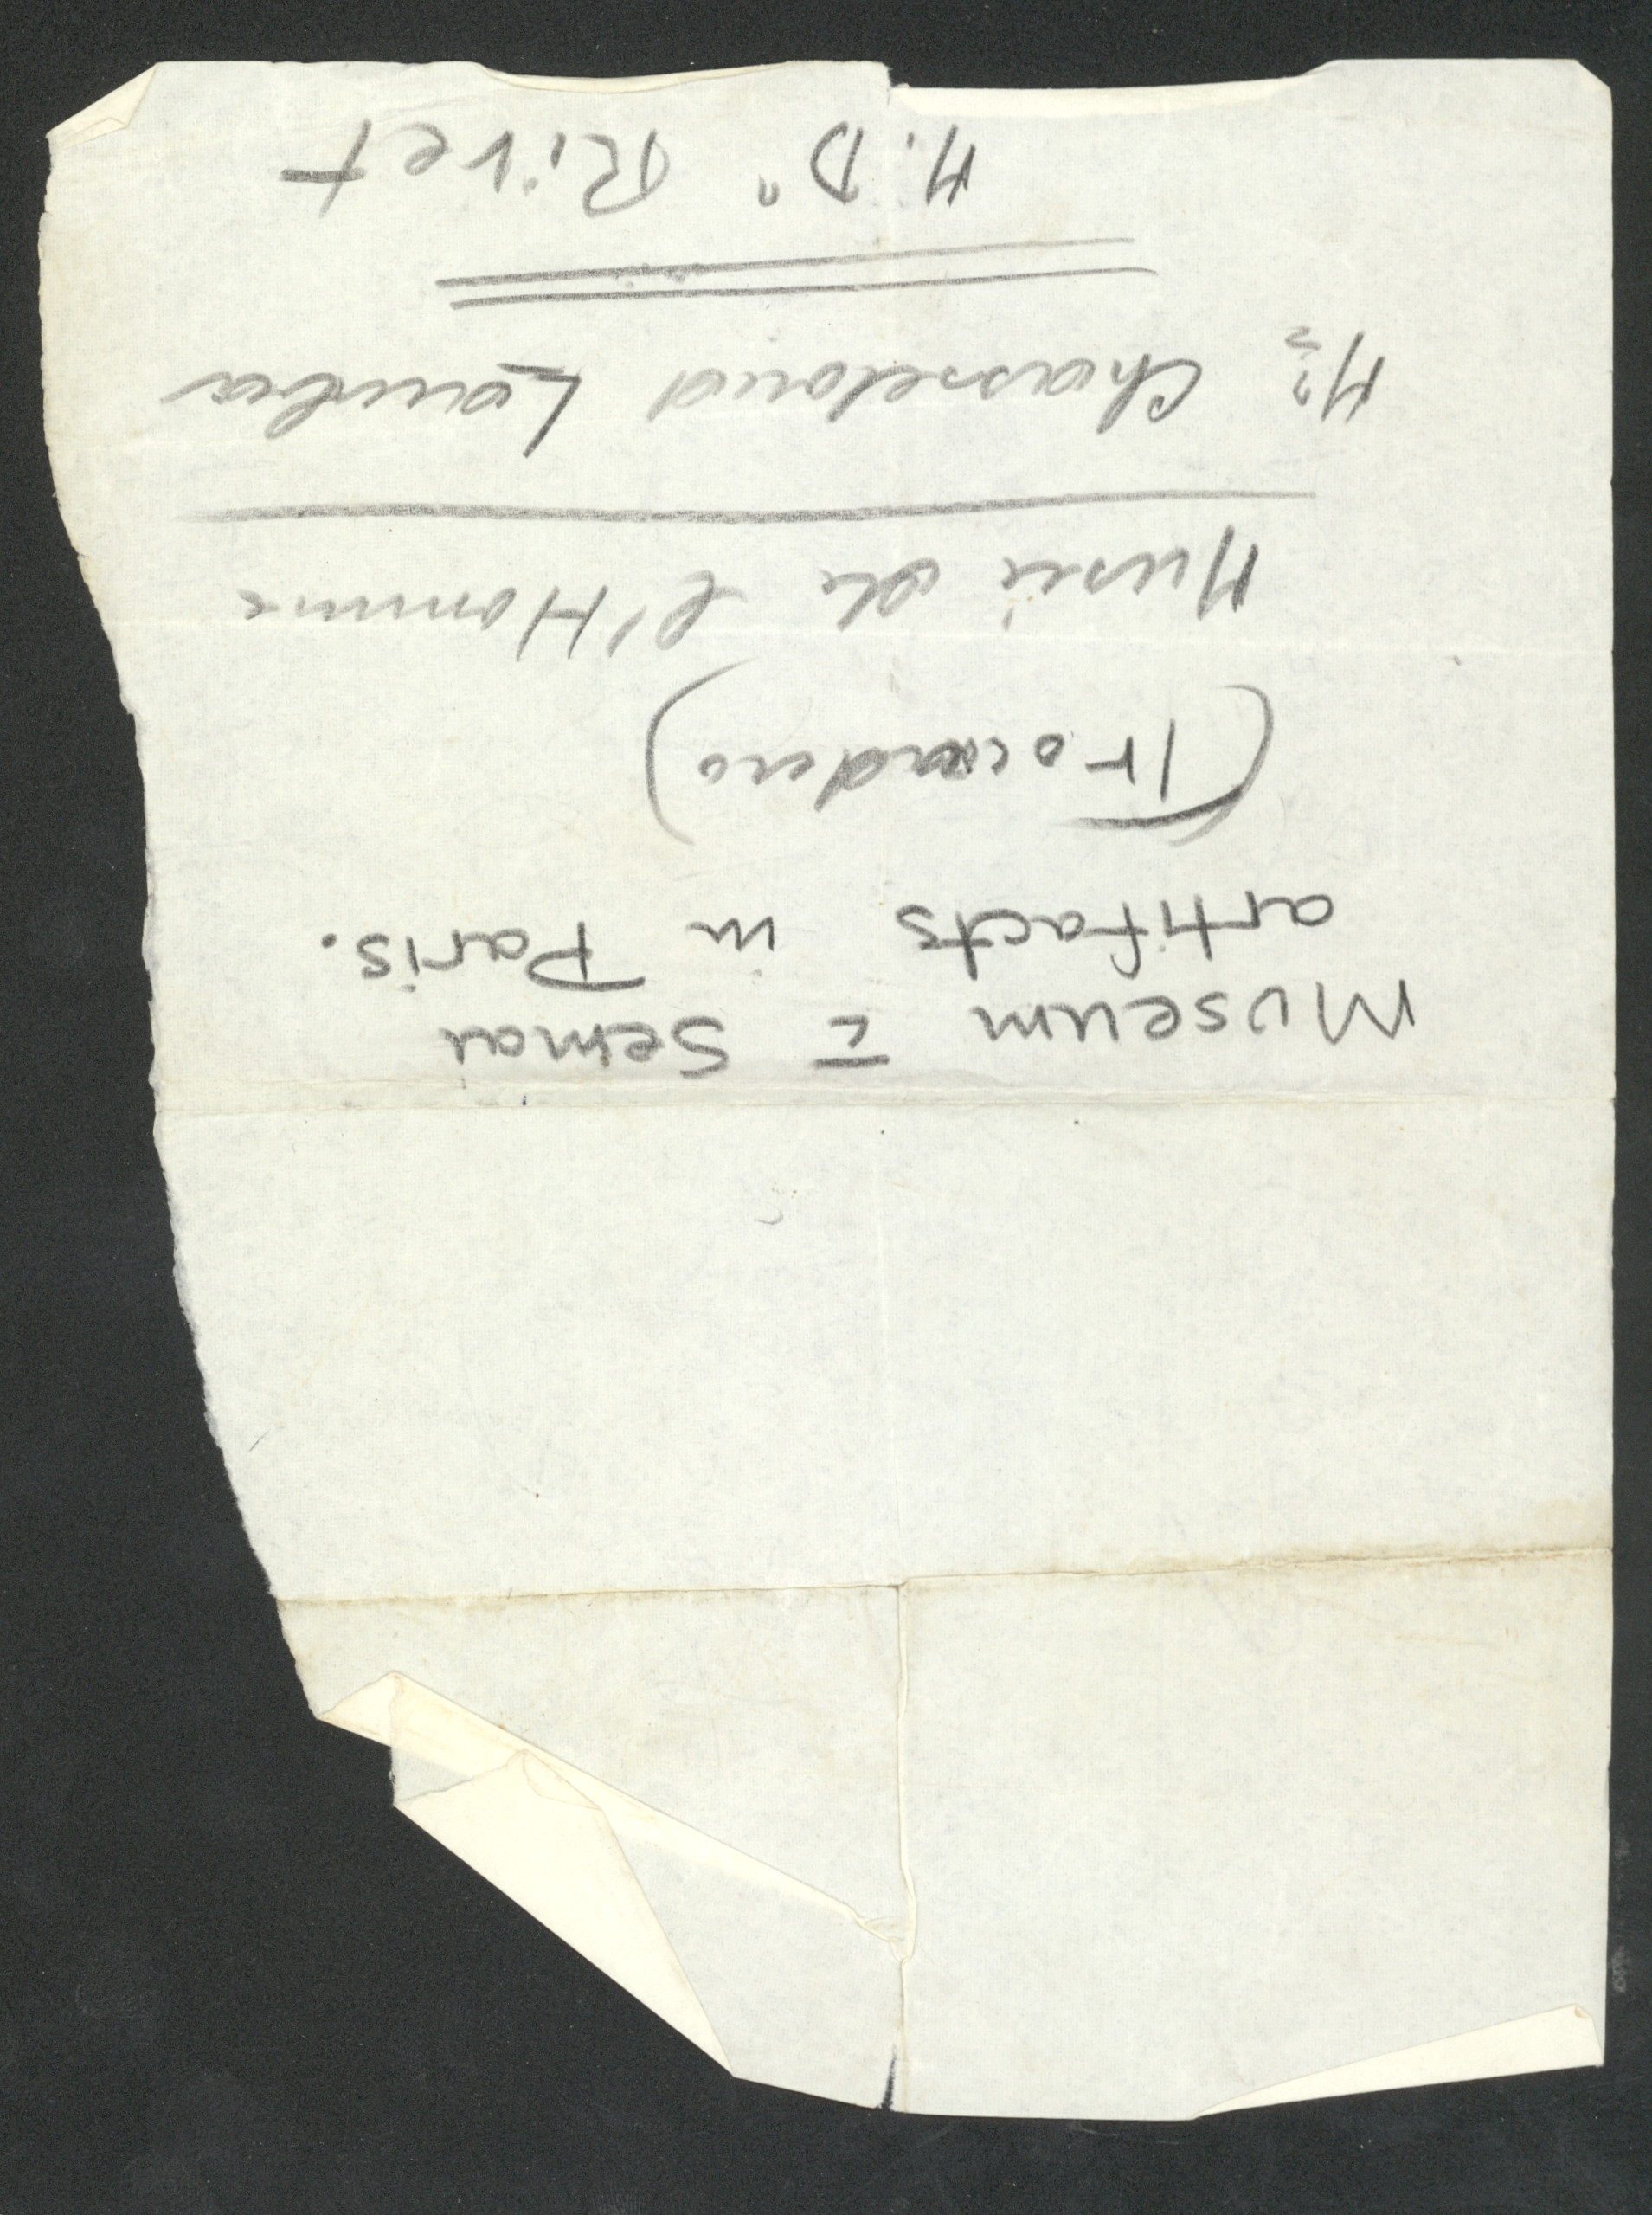 Museum c̄ Semai
artifacts in Paris.
(Trocadero)
Musée de l'Homme
Chasseloud Lauba
M. Dr Rivet